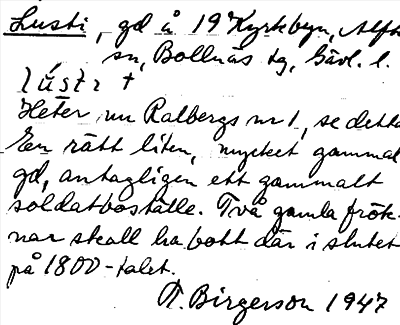 Lusti, gd å 19 Kyrkbyn, Alfta
sn, Bollnäs tg, Gävl. l.
lústi †
Heter nu Ralbergs nr 1, se detta
En rätt liten, mycket gammal
gd, antagligen ett gammalt
soldatboställe. Två gamla frök-
nar skall ha bott där i slutet
på 1800-talet.
F. Birgerson 1947